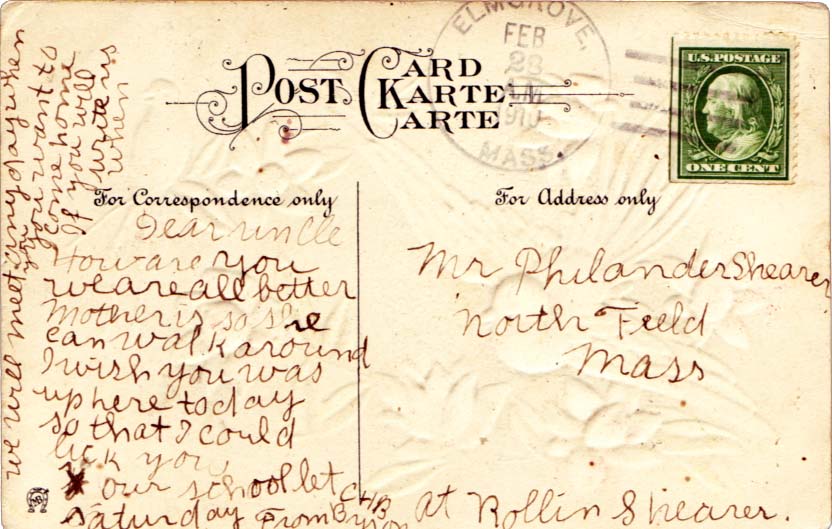 POST CARD
KARTE
CARTE
ELMGROVE,
FEB
28
A.M.
1910
MASS.
U.S. POSTAGE
ONE CENT
For Correspondence only
For Address only
Dear uncle
How are you
we are all better
Mother is so she
can walk around
I wish you was
up here today
so that I could
lick you
our school let
Saturday From Byron
CHB
we will meet you any day when
you want to
come home
If you will
write us
when
Mr Philander Shearer
North Field
Mass
at Rollin Shearer.